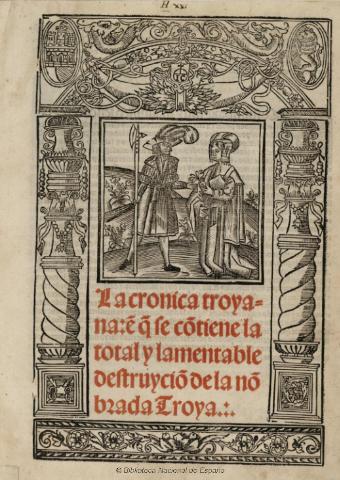 H
La cronica troya-
na: ẽ q̃ se cõtiene la
total y lamentable
destruyciõ de la nõ
brada Troya .:.
© Biblioteca Nacional de España